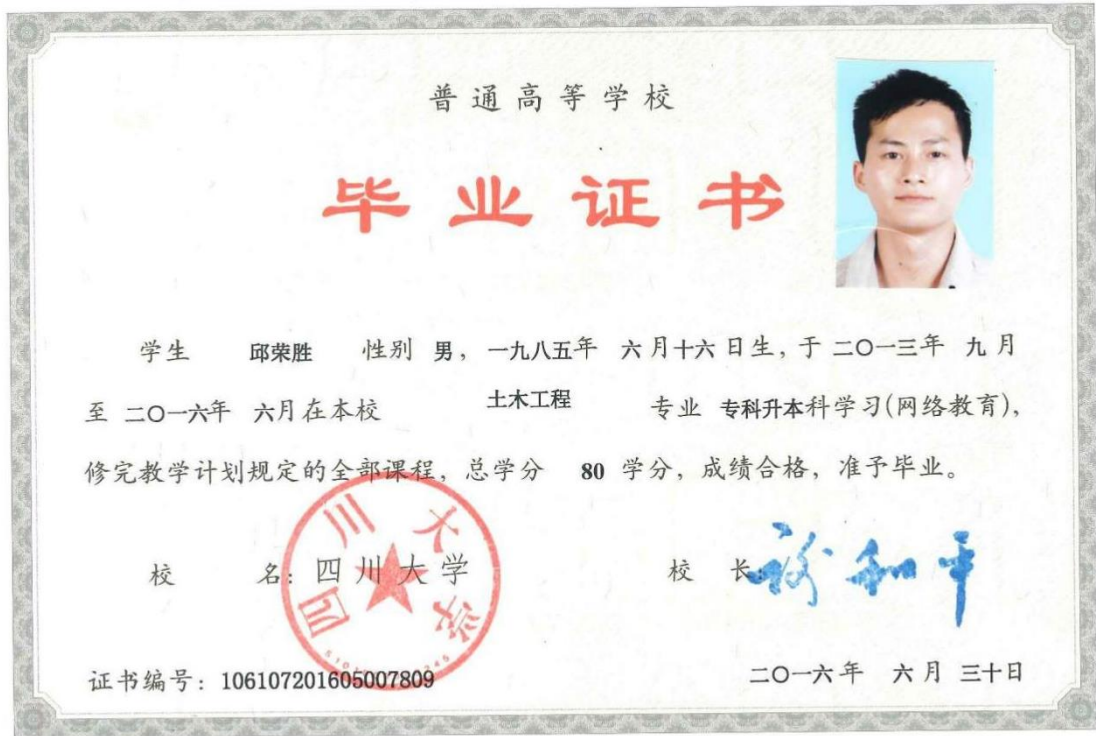 普通高等学校
毕业证书
学生 邱荣胜 性别 男，一九八五年 六月十六日生，于二〇一三年 九月
至 二〇一六年 六月在本校 土木工程 专业 专科升本科学习(网络教育)，
修完教学计划规定的全部课程，总学分 80 学分，成绩合格，准予毕业。
校 名：四川大学 校 长：
四川大学
证书编号：106107201605007809 二〇一六年 六月 三十日